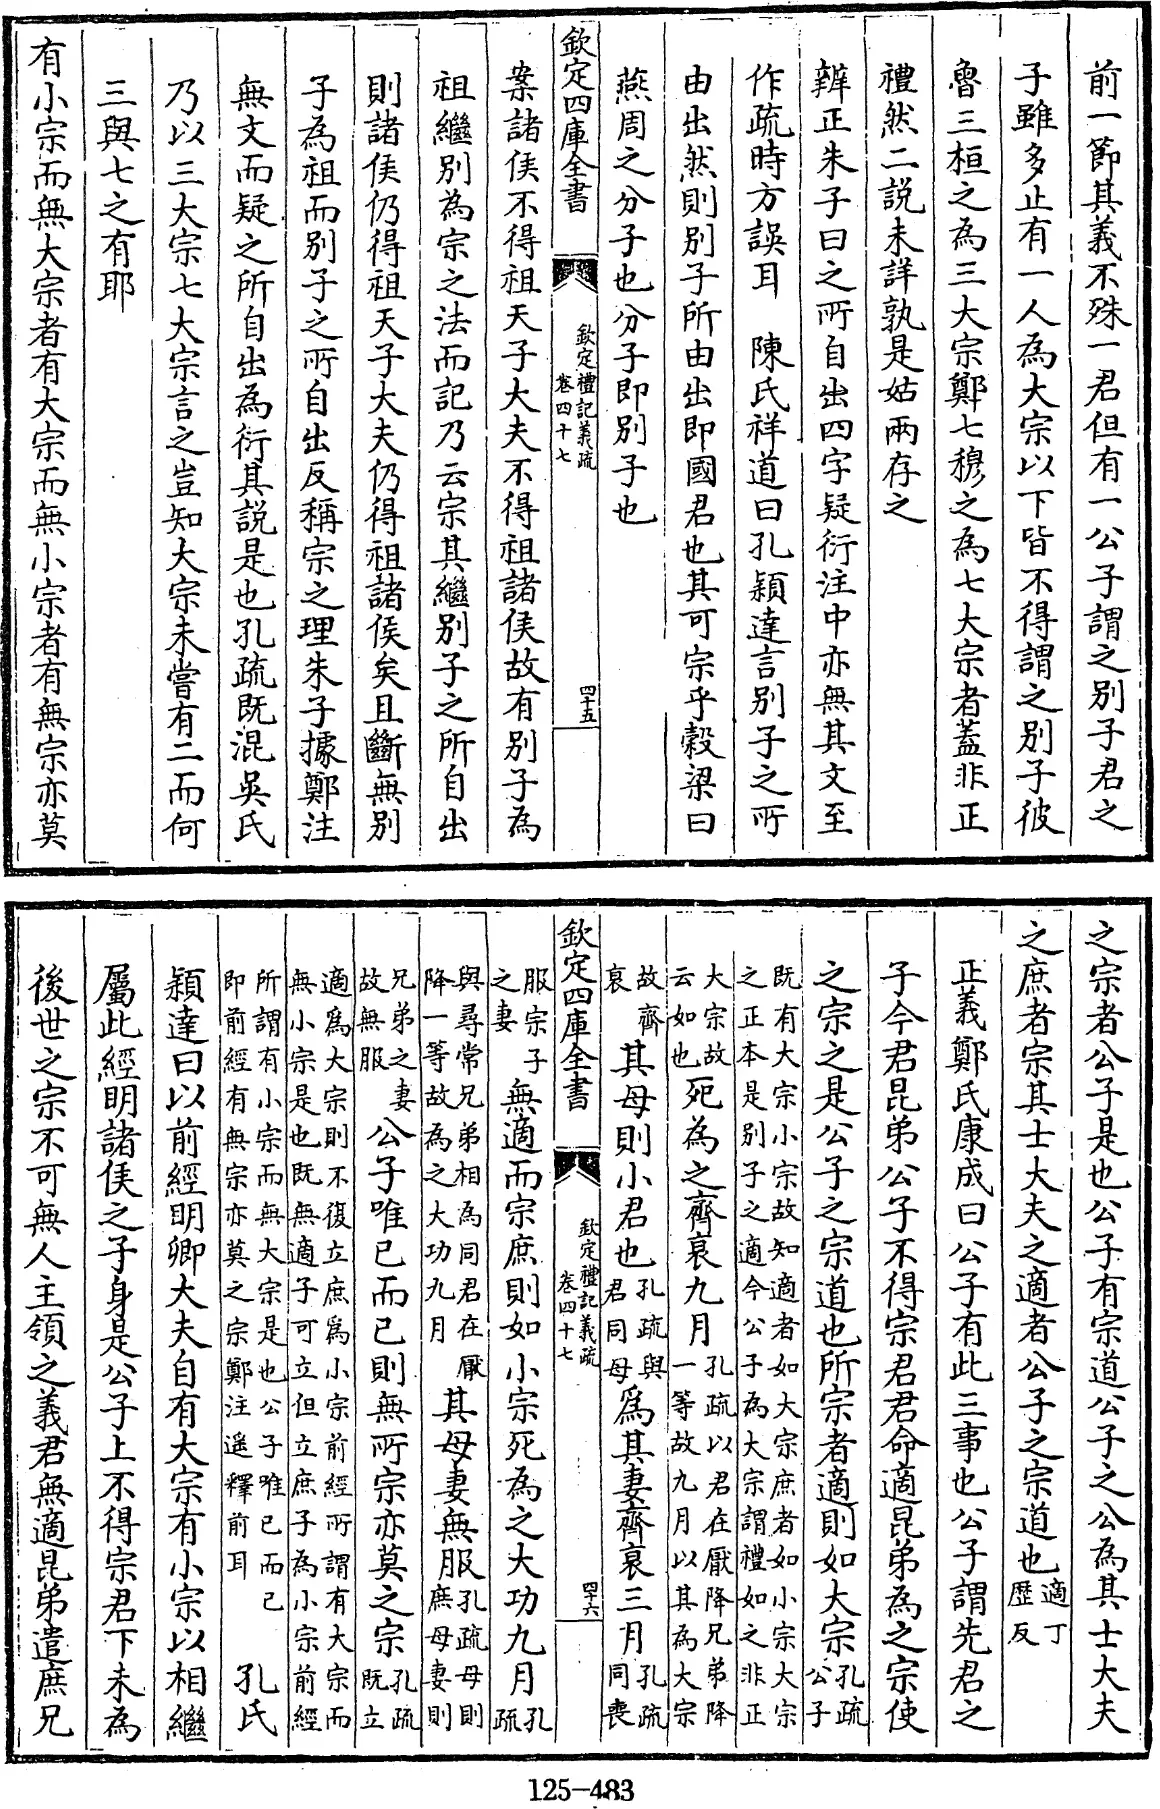 前一節其義不殊一君但有一公子謂之别子君之
子雖多止有一人為大宗以下皆不得謂之别子彼
魯三桓之為三大宗鄭七穆之為七大宗者蓋非正
禮然二説未詳孰是姑兩存之
辨正朱子曰之所自出四字疑衍注中亦無其文至
作疏時方誤耳　陳氏祥道曰孔穎達言别子之所
由出然則别子所由出即國君也其可宗乎榖梁曰
燕周之分子也分子即别子也
欽定四庫全書
欽定禮記義疏
卷四十七
四十五
案諸侯不得祖天子大夫不得祖諸侯故有别子為
祖繼别為宗之法而記乃云宗其繼别子之所自出
則諸侯仍得祖天子大夫仍得祖諸侯矣且斷無别
子為祖而别子之所自出反稱宗之理朱子據鄭注
無文而疑之所自出為衍其説是也孔疏既混吳氏
乃以三大宗七大宗言之豈知大宗未嘗有二而何
三與七之有耶
有小宗而無大宗者有大宗而無小宗者有無宗亦莫
之宗者公子是也公子有宗道公子之公為其士大夫
之庶者宗其士大夫之適者公子之宗道也適丁
歷反
正義鄭氏康成曰公子有此三事也公子謂先君之
子今君昆弟公子不得宗君君命適昆弟為之宗使
之宗之是公子之宗道也所宗者適則如大宗孔疏
公子
既有大宗小宗故知適者如大宗庶者如小宗大宗
之正本是别子之適今公子為大宗謂禮如之非正
大宗故
云如也死為之齊衰九月孔疏以君在厭降兄弟降
一等故九月以其為大宗
故齊
衰其母則小君也孔疏與
君同母為其妻齊衰三月孔疏
同喪
欽定四庫全書
欽定禮記義疏
卷四十七
四十六
服宗子
之妻無適而宗庶則如小宗死為之大功九月孔
疏
與尋常兄弟相為同君在厭
降一等故為之大功九月其母妻無服孔疏母則
庶母妻則
兄弟之妻
故無服公子唯已而已則無所宗亦莫之宗孔疏
既立
適為大宗則不復立庶為小宗前經所謂有大宗而
無小宗是也既無適子可立但立庶子為小宗前經
所謂有小宗而無大宗是也公子唯已而已
即前經有無宗亦莫之宗鄭注遥釋前耳　孔氏
穎達曰以前經明卿大夫自有大宗有小宗以相繼
屬此經明諸侯之子身是公子上不得宗君下未為
後世之宗不可無人主領之義君無適昆弟遣庶兄
125-483